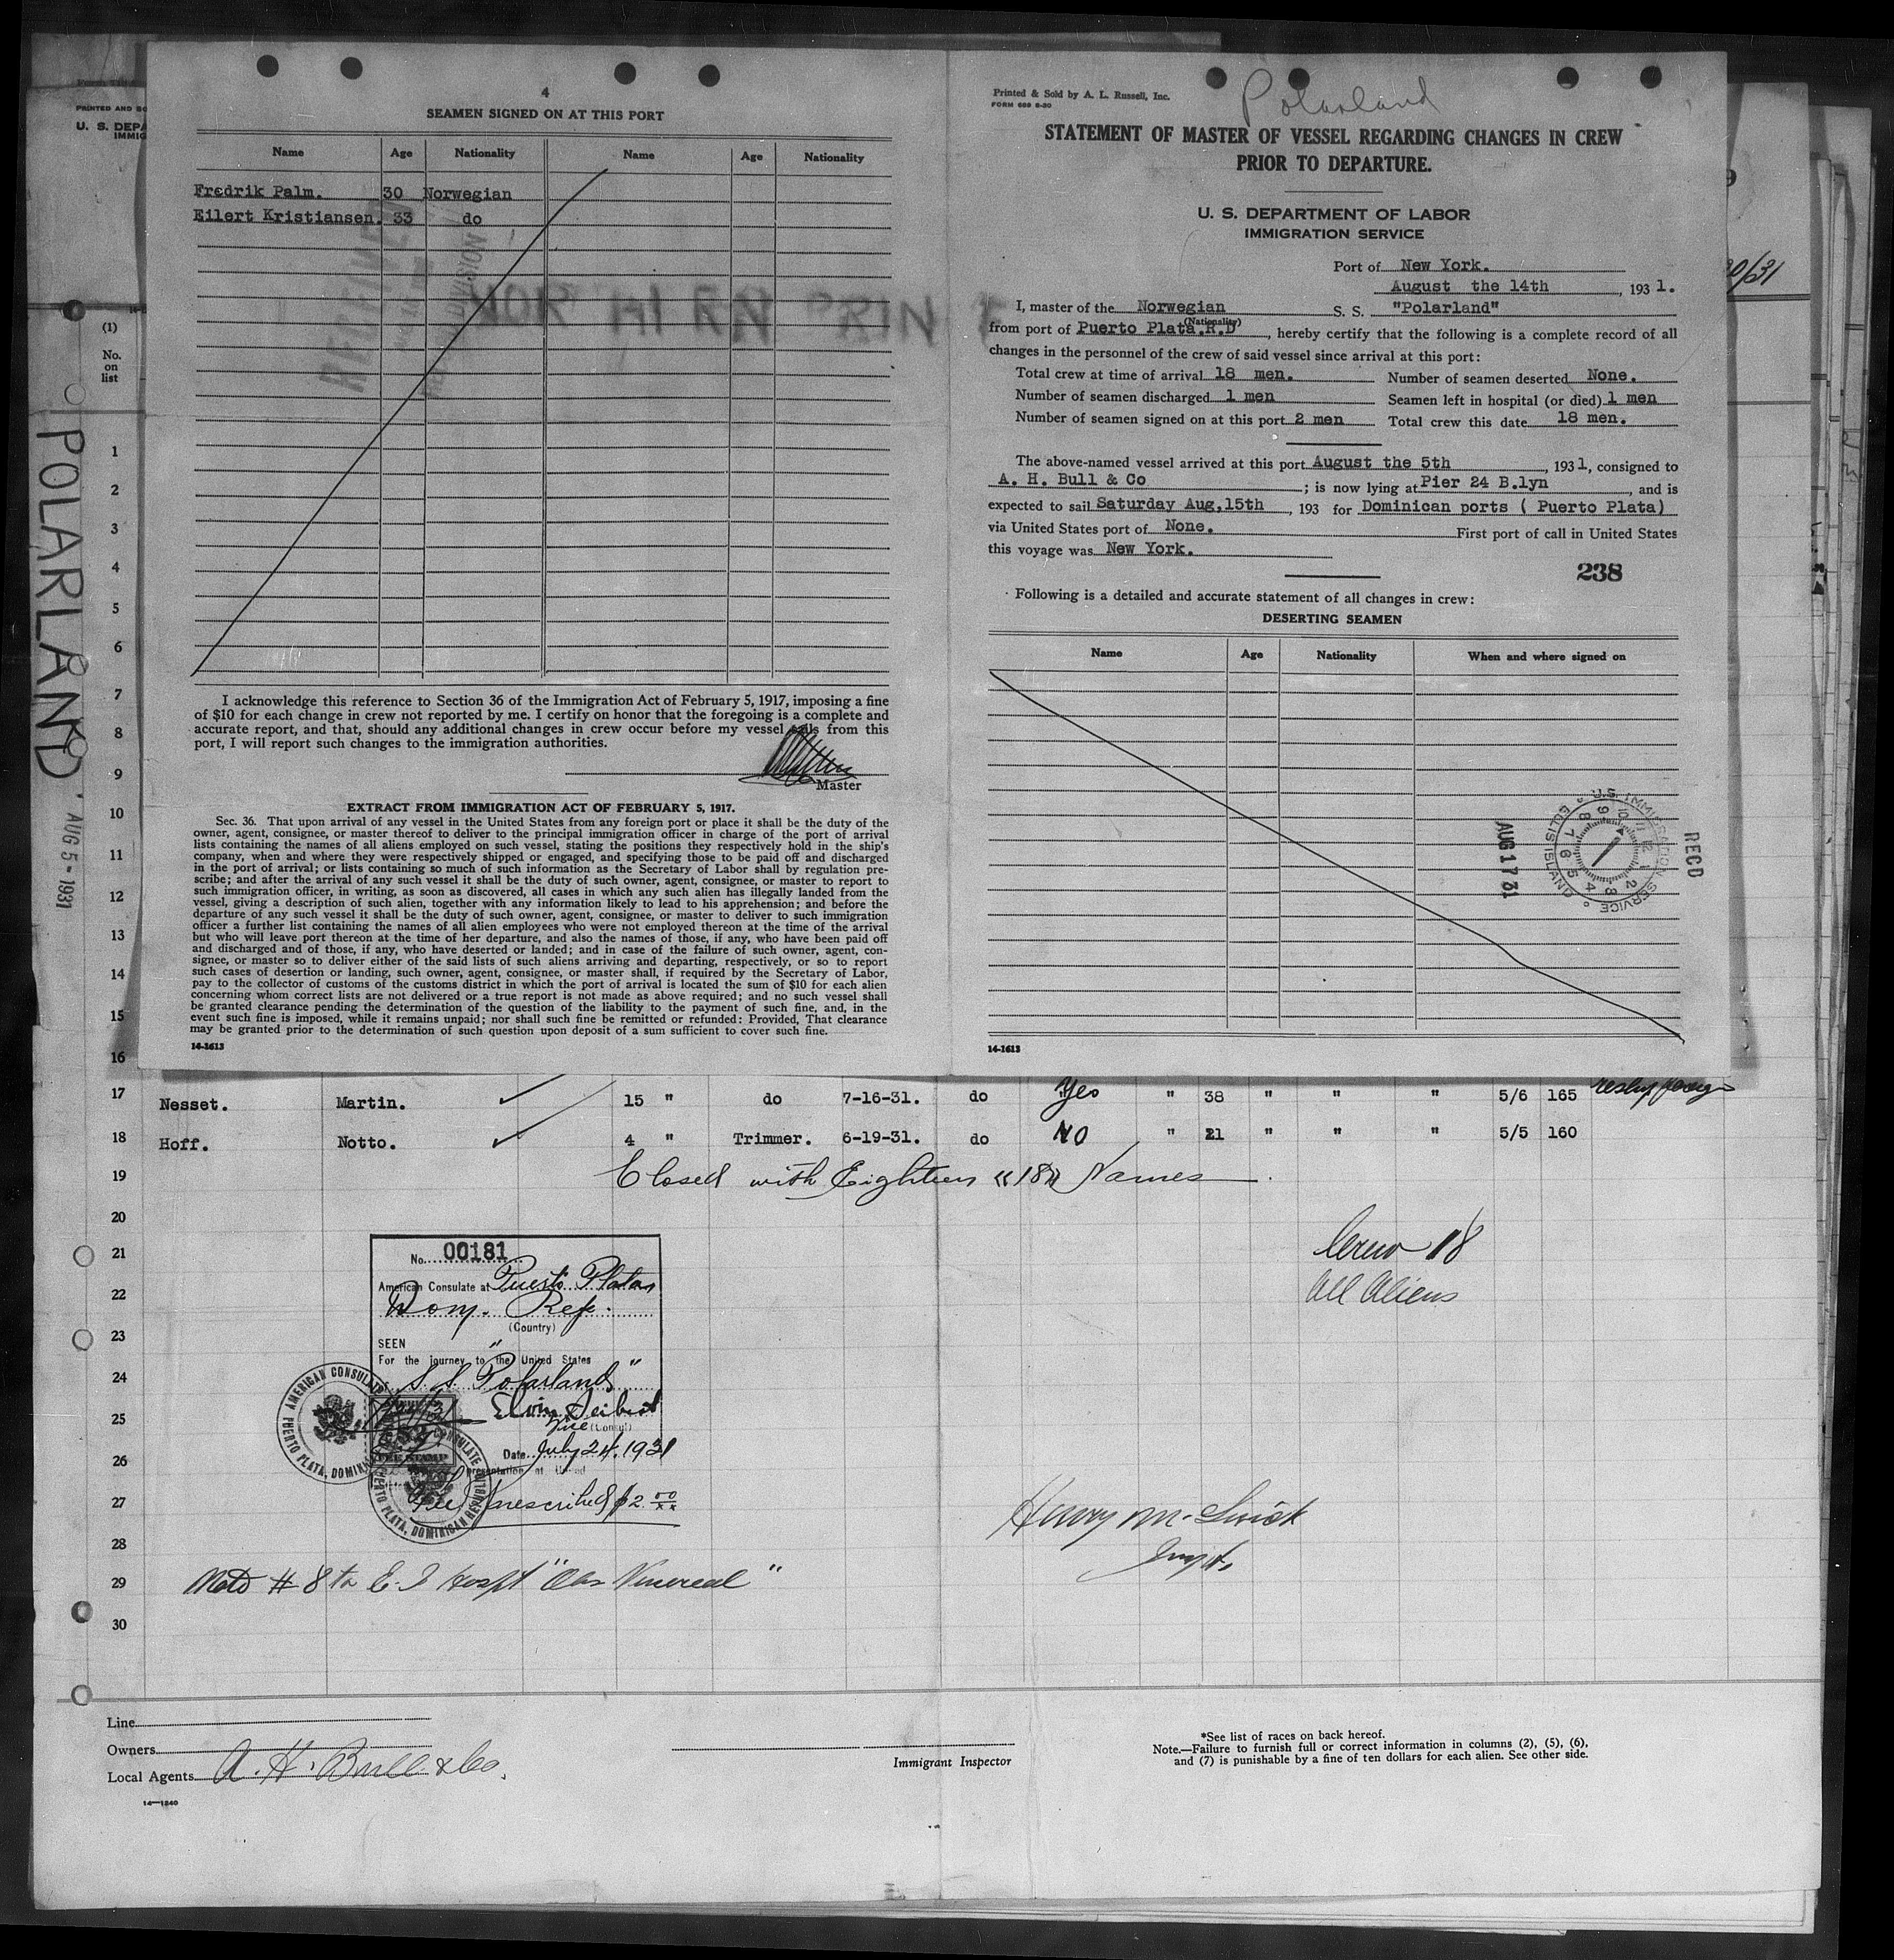 4
SEAMEN SIGNED ON AT THIS PORT
Name Age Nationality Name Age Nationality
Fredrik Palm. 30 Norwegian
Eilert Kristiansen. 33 do
I acknowledge this reference to Section 36 of the Immigration Act of February 5, 1917, imposing a fine
of $10 for each change in crew not reported by me. I certify on honor that the foregoing is a complete and
accurate report, and that, should any additional changes in crew occur before my vessel sails from this
port, I will report such changes to the immigration authorities.
Master
EXTRACT FROM IMMIGRATION ACT OF FEBRUARY 5, 1917.
Sec. 36. That upon arrival of any vessel in the United States from any foreign port or place it shall be the duty of the
owner, agent, consignee, or master thereof to deliver to the principal immigration officer in charge of the port of arrival
lists containing the names of all aliens employed on such vessel, stating the positions they respectively hold in the ship's
company, when and where they were respectively shipped or engaged, and specifying those to be paid off and discharged
in the port of arrival; or lists containing so much of such information as the Secretary of Labor shall by regulation pre-
scribe; and after the arrival of any such vessel it shall be the duty of such owner, agent, consignee, or master to report to
such immigration officer, in writing, as soon as discovered, all cases in which any such alien has illegally landed from the
vessel, giving a description of such alien, together with any information likely to lead to his apprehension; and before the
departure of any such vessel it shall be the duty of such owner, agent, consignee, or master to deliver to such immigration
officer a further list containing the names of all alien employees who were not employed thereon at the time of the arrival
but who will leave port thereon at the time of her departure, and also the names of those, if any, who have been paid off
and discharged and of those, if any, who have deserted or landed; and in case of the failure of such owner, agent, con-
signee, or master so to deliver either of the said lists of such aliens arriving and departing, respectively, or so to report
such cases of desertion or landing, such owner, agent, consignee, or master shall, if required by the Secretary of Labor,
pay to the collector of customs of the customs district in which the port of arrival is located the sum of $10 for each alien
concerning whom correct lists are not delivered or a true report is not made as above required; and no such vessel shall
be granted clearance pending the determination of the question of the liability to the payment of such fine, and, in the
event such fine is imposed, while it remains unpaid; nor shall such fine be remitted or refunded: Provided, That clearance
may be granted prior to the determination of such question upon deposit of a sum sufficient to cover such fine.
14-1613
Printed & Sold by A. L. Russell, Inc.
FORM 689 6-30
Polarland
STATEMENT OF MASTER OF VESSEL REGARDING CHANGES IN CREW
PRIOR TO DEPARTURE.
U. S. DEPARTMENT OF LABOR
IMMIGRATION SERVICE
Port of New York.
August the 14th, 1931.
I, master of the Norwegian S. S. "Polarland"
(Nationality)
from port of Puerto Plata.R.D, hereby certify that the following is a complete record of all
changes in the personnel of the crew of said vessel since arrival at this port:
Total crew at time of arrival 18 men. Number of seamen deserted None.
Number of seamen discharged 1 men Seamen left in hospital (or died) 1 men
Number of seamen signed on at this port 2 men Total crew this date 18 men.
The above-named vessel arrived at this port August the 5th, 1931, consigned to
A. H. Bull & Co; is now lying at Pier 24 B.lyn, and is
expected to sail Saturday Aug,15th, 193 for Dominican ports ( Puerto Plata)
via United States port of None. First port of call in United States
this voyage was New York.
238
Following is a detailed and accurate statement of all changes in crew:
DESERTING SEAMEN
Name Age Nationality When and where signed on
U.S. IMMIGRATION SERVICE ELLIS ISLAND
REC'D
AUG 17 31
14-1613
PRINTED AND
U. S. DEPA
IMMIG
(1)
No.
on
list
POLARLAND
AUG 5 - 1931
1
2
3
4
5
6
7
8
9
10
11
12
13
14
15
16
17 Nesset. Martin. 15 " do 7-16-31. do Yes " 38 " " " 5/6 165
18 Hoff. Notto. 4 " Trimmer. 6-19-31. do NO " 21 " " " 5/5 160
19 Closed with Eighteen "18" Names
20
21
22
23
24
25
26
27
28
29
30
Crew 18
All Aliens
No. 00181
American Consulate at Puerto Plata
Dom. Rep.
(Country)
SEEN
For the journey to the United States
S. S. "Polarland"
Vice (Consul)
Date July 24, 1931
Fee prescribed $2.00
AMERICAN CONSULATE
PUERTO PLATA, DOMINICAN REPUBLIC
Henry M.
Insptr.
#8 to E. I Hospt "Obs Venereal"
Line
Owners
Local Agents A. H. Bull & Co.
14-1240
Immigrant Inspector
*See list of races on back hereof.
Note.—Failure to furnish full or correct information in columns (2), (5), (6),
and (7) is punishable by a fine of ten dollars for each alien. See other side.